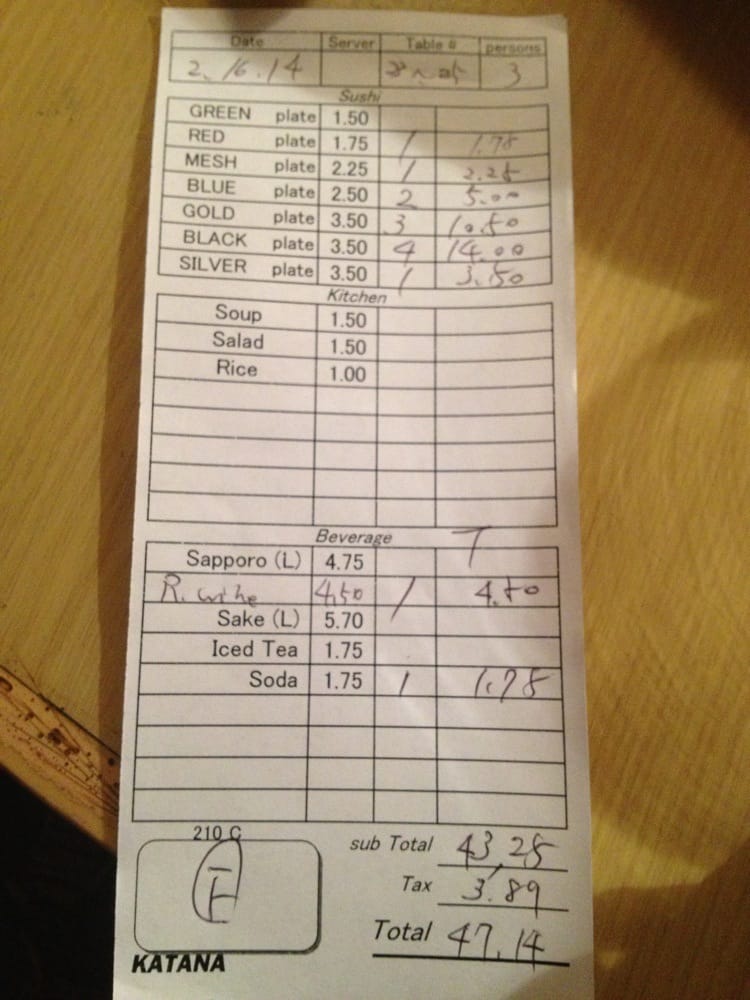 Date Server Table # persons
2.16.14 3
Sushi
GREEN plate 1.50
RED plate 1.75 1 1.75
MESH plate 2.25 1 2.25
BLUE plate 2.50 2 5.00
GOLD plate 3.50 3 10.50
BLACK plate 3.50 4 14.00
SILVER plate 3.50 1 3.50
Kitchen
Soup 1.50
Salad 1.50
Rice 1.00
Beverage
Sapporo (L) 4.75
R. wine 4.50 1 4.50
Sake (L) 5.70
Iced Tea 1.75
Soda 1.75 1 1.75
210 C
sub Total 43.25
Tax 3.89
Total 47.14
KATANA